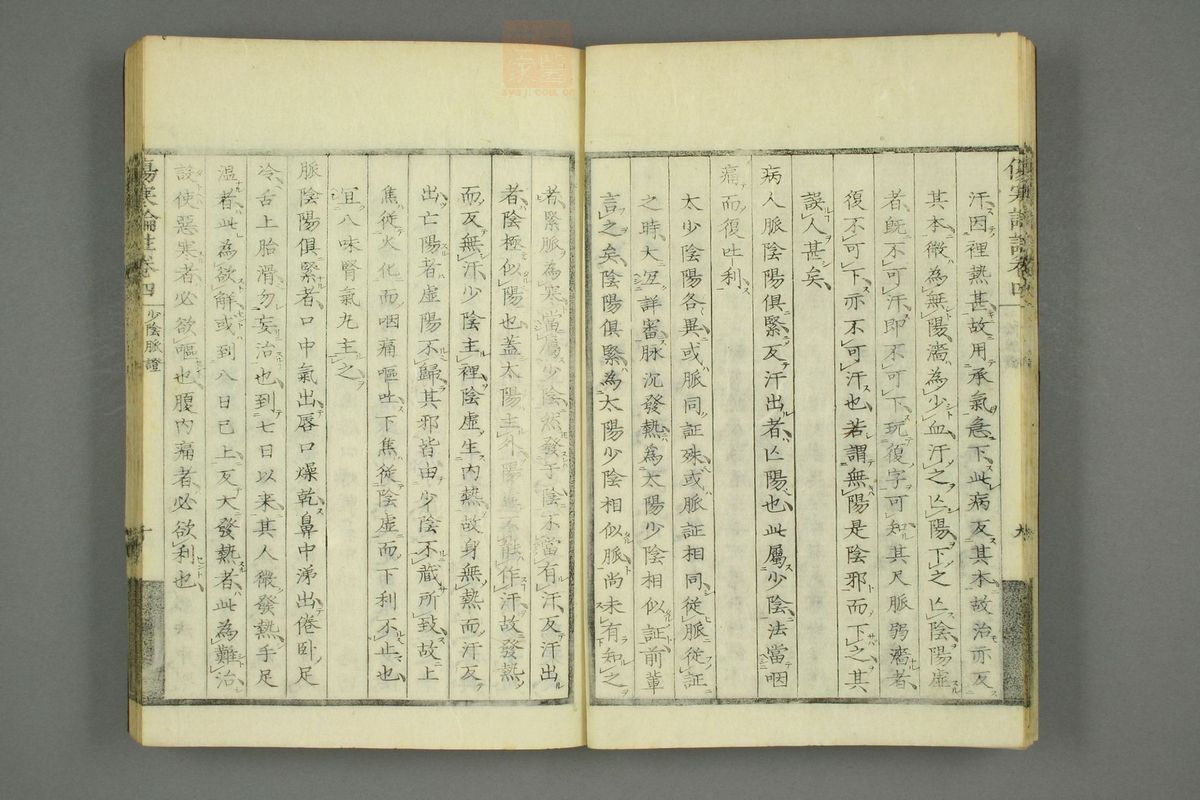 汗因裡熱甚故用承氣急下此病反其本故治亦反
其本微為無陽濇為少血汗之亾陽下之亾陰陽虛
者既不可汗即不可下玩復字可知其尺脈弱濇者
復不可下亦不可汗也若謂無陽是陰邪而下之其
誤人甚矣
病人脈陰陽俱緊反汗出者亾陽也此屬少陰法當咽
痛而復吐利
太少陰陽各異或脈同証殊或脈証相同從脈從証
之時大冝詳審脉沉發熱為太陽少陰相似証前輩
言之矣陰陽俱緊為太陽少陰相似脈尚未有知之
傷寒論註卷四
九
者緊脈為寒當屬少陰然發于陰不當有汗反汗出
者陰極似陽也蓋太陽主外陽 不能作汗故發熱
而反無汗少陰主裡陰虛生内熱故身無熱而汗反
出亡陽者虛陽不歸其邪皆由少陰不藏所致故上
焦從火化而咽痛嘔吐下焦從陰虛而下利不止也
冝八味腎氣丸主之
脈陰陽俱緊者口中氣出唇口燥乾鼻中涕出倦卧足
冷舌上胎滑勿妄治也到七日以来其人微發熱手足
溫者此為欲解或到八日已上反大發熱者此為難治
設使惡寒者必欲嘔也腹内痛者必欲利也
傷寒論註卷四
少陰脈證
十